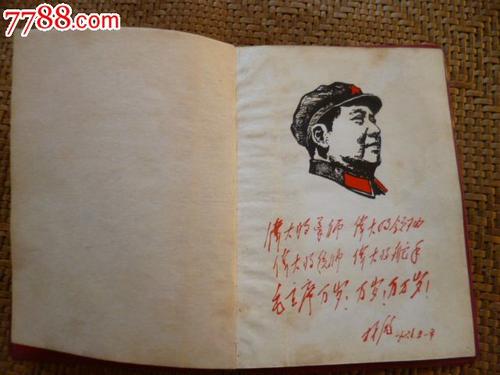 7788.com
伟大的导师 伟大的领袖
伟大的统帅 伟大的舵手
毛主席万岁!万岁!万万岁!
林彪